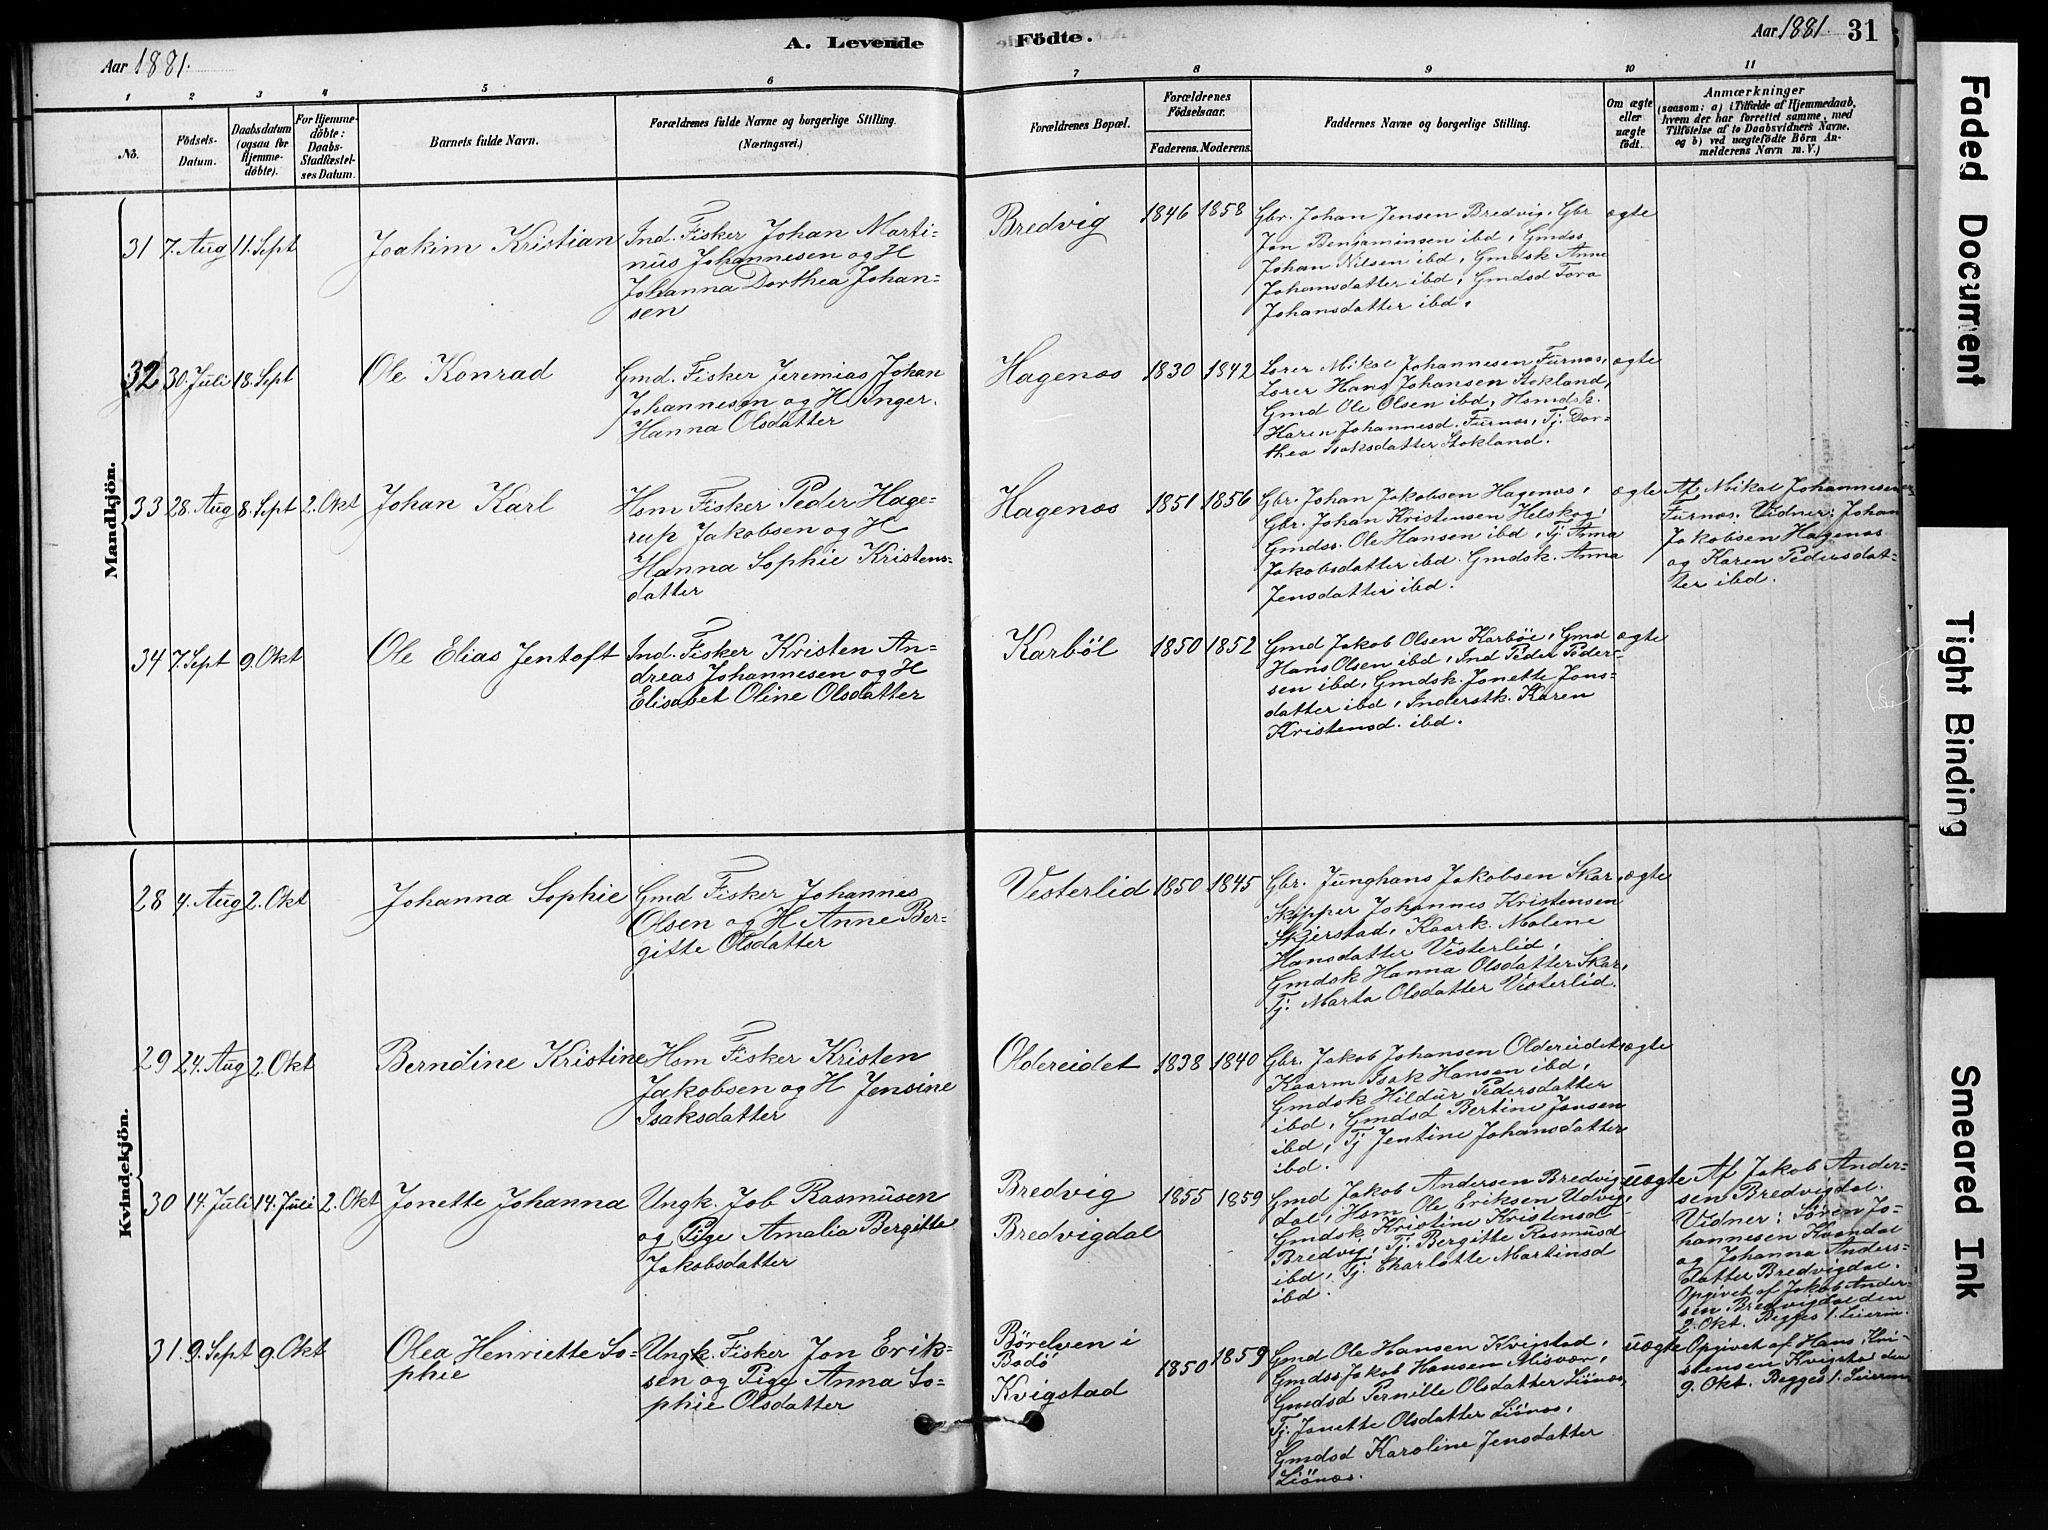 A. Levende Födte.
Aar 1881.
Aar 1881. 31
1 2 3 4 5 6 7 8 9 10 11
No.
Födsels-Datum.
Daabsdatum (ogsaa for Hjemmedöbte).
For Hjemmedöbte: Daabs-Stadfæstelses Datum.
Barnets fulde Navn.
Forældrenes fulde Navne og borgerlige Stilling. (Næringsvei.)
Forældrenes Bopæl.
Forældrenes Födselsaar.
Faderens. Moderens.
Faddernes Navne og borgerlige Stilling.
Om ægte eller uægte födt.
Anmærkninger
(saasom: a) i Tilfælde af Hjemmedaab,
hvem der har forrettet samme, med
Tilföielse af to Daabsvidners Navne.
og b) ved uægtefödte Börn An-
melderens Navn m. V.)
Mandkjön.
31 7. Aug 11. Sept
Joakim Kristian
Ind. Fisker Johan Marti-
nus Johannesen og H
Johanna Dorthea Johan-
sen
Bredvig
1846 1858
Gbr. Johan Jensen Bredvig, Gbr
Jon Benjaminsen ibd, Gmdss
Johan Nilsen ibd, Gmdsk Anne
Johansdatter ibd, Gmdsd Tora
Johansdatter ibd.
ægte
32 30. Juli 18. Sept
Ole Konrad
Gmd. Fisker Jeremias Johan
Johannesen og H. Inger
Hanna Olsdatter
Hagenæs
1830 1842
Lærer Mikal Johannesen Furnæs,
Lærer Hans Johansen Stokland,
Gmd Ole Olsen ibd, Hsmdsk.
Karen Johannesd. Furnæs, Tj. Dor-
thea Isaksdatter Stokland.
ægte
33 28. Aug 8. Sept 2. Okt
Johan Karl
Hsm Fisker Peder Hage-
rup Jakobsen og H
Hanna Sophie Kristens-
datter
Hagenæs
1851 1856
Gbr. Johan Jakobsen Hagenæs,
Gbr. Johan Kristensen Helskog,
Gmdss. Ole Hansen ibd, Tj. Anna
Jakobsdatter ibd. Gmdsk. Anna
Jensdatter ibd.
ægte
Af Mikal Johannesen
Furnæs. Vidner: Johan
Jakobsen Hagenæs
og Karen Pedersdat-
ter ibd.
34 7. Sept 9. Okt
Ole Elias Jentoft
Ind. Fisker Kristen An-
dreas Johannesen og H
Elisabet Oline Olsdatter
Karböl
1850 1852
Gmd Jakob Olsen Karböl, Gmd
Hans Olsen ibd, Ind Peder Peder-
sen ibd, Gmdsk. Jonette Jons-
datter ibd, Inderstk. Karen
Kristensd. ibd.
ægte
Kvindekjön.
28 4. Aug 2. Okt
Johanna Sophie
Gmd Fisker Johannes
Olsen og H Anne Ber-
gitte Olsdatter
Vesterlid
1850 1845
Gbr. Junghans Jakobsen Skar,
Skipper Johannes Kristensen
Skjerstad, Kaark. Malene
Hansdatter Vesterlid,
Gmdsk Hanna Olsdatter Skar,
Tj. Marta Olsdatter Vesterlid.
ægte
29 24. Aug 2. Okt
Berndine Kristine
Hsm Fisker Kristen
Jakobsen og H Jensine
Isaksdatter
Oldereidet
1838 1840
Gbr. Jakob Johansen Oldereidet
Kaarm Isak Hansen ibd,
Gmdsk Hildur Pedersdatter
ibd, Gmdsd Bertine Jansen
ibd, Tj Jentine Johansdatter
ibd.
ægte
30 14. Juli 14. Juli 2. Okt
Jonette Johanna
Ungk. Job Rasmusen
og Pige Amalia Bergitte
Jakobsdatter
Bredvig
Bredvigdal
1855 1859
Gmd Jakob Andersen Bredvig-
dal, Hsm Ole Eriksen Udvig,
Gmdsk Kristine Kristensd
Bredvig, Tj. Bergitte Rasmusd
ibd, Tj. Charlotte Martinsd
ibd.
uægte
Af Jakob Ander-
sen Bredvigdal.
Vidner: Sören Jo-
hannesen Kvandal
og Johanna Anders-
datter Bredvigdal.
Opgivet af Jakob Ander-
sen Bredvigdal den
2. Okt. Begges 1. Leierm.
31. 9. Sept 9. Okt
Olea Henriette So-
phie
Ungk. Fisker Jon Erik-
sen og Pige Anna So-
phie Olsdatter
Börelven i
Bodö
Kvigstad
1850 1859
Gmd Ole Hansen Kvigstad,
Gmdss Jakob Hansen Misvær,
Gmdsd Pernille Olsdatter Liönæs,
Tj. Jonette Olsdatter Liönæs,
Gmdsd Karoline Jensdatter
Liönæs.
uægte
Opgivet af Hans Kri-
stensen Kvigstad den
9. Okt. Begges 1. Leierm
Faded Document
Tight Binding
Smeared Ink